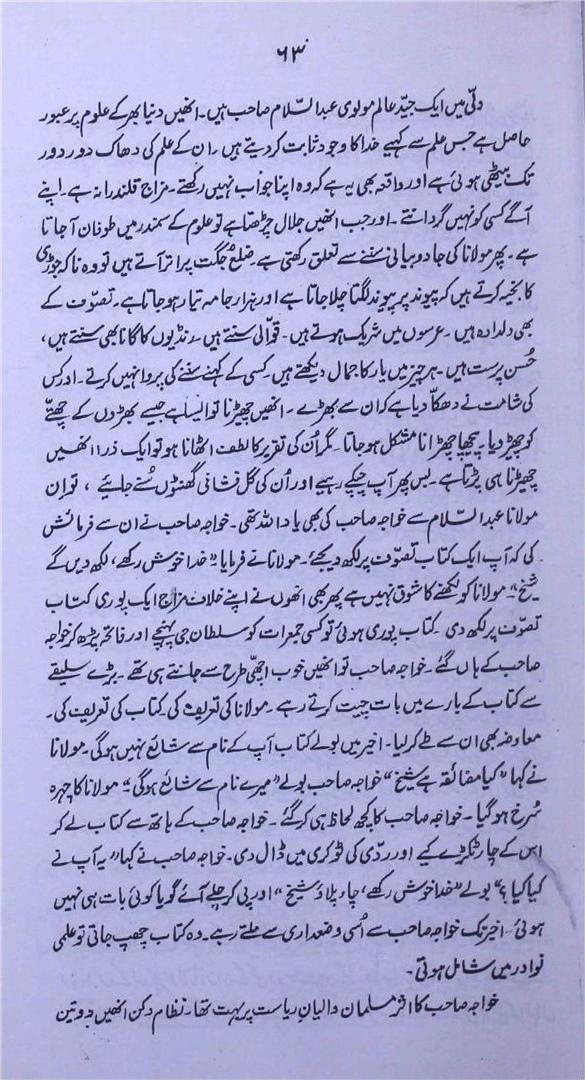 ۶۳
دلّی میں ایک جیّد عالم مولوی عبدالسّلام صاحب ہیں۔ انھیں دنیا بھر کے علوم پر عبور
حاصل ہے جس علم سے کہیے خدا کا وجود ثابت کر دیتے ہیں۔ ان کے علم کی دھاک دور دور
تک بیٹھی ہوئی ہے اور واقعہ بھی یہ ہے کہ وہ اپنا جواب نہیں رکھتے۔ مزاج قلندرانہ ہے۔ اپنے
آگے کسی کو نہیں گردانتے۔ اور جب انھیں جلال چڑھتا ہے تو علوم کے سمندر میں طوفان آ جاتا
ہے۔ پھر مولانا کی جادو بیانی سننے سے تعلق رکھتی ہے۔ ضلع جگت پر اتر آتے ہیں تو وہ نا کہ جوڑی
کا بخیہ کرتے ہیں کہ پیوند پر پیوند لگتا چلا جاتا ہے اور ہزار جامہ تیار ہو جاتا ہے۔ تصوّف کے
بھی دلدادہ ہیں۔ عرسوں میں شریک ہوتے ہیں۔ قوّالی سنتے ہیں۔ رنڈیوں کا گانا بھی سنتے ہیں،
حُسن پرست ہیں۔ ہر چیز میں یار کا جمال دیکھتے ہیں۔ کسی کے کہنے سننے کی پروا نہیں کرتے۔ اور کس
کی شامت نے دھکّا دیا ہے کہ ان سے بھڑے۔ انھیں چھیڑنا تو ایسا ہے جیسے بھڑوں کے چھتّے
کو چھیڑ دیا۔ پیچھا چھڑانا مشکل ہو جاتا۔ مگر اُن کی تقریر کا لطف اٹھانا ہو تو ایک ذرا انھیں
چھیڑنا ہی پڑتا ہے۔ بس پھر آپ چپکے رہیے اور اُن کی گل فشانی گھنٹوں سُنے جائیے ، تو ان
مولانا عبدالسلام سے خواجہ صاحب کی بھی یاد اللہ تھی۔ خواجہ صاحب نے ان سے فرمائش
کی کہ آپ ایک کتاب تصوّف پر لکھ دیجئے۔ مولانا نے فرمایا "خدا خوش رکھے، لکھ دیں گے
شیخ"۔ مولانا کو لکھنے کا شوق نہیں ہے پھر بھی انھوں نے اپنے خلاف مزاج ایک پوری کتاب
تصوّف پر لکھ دی۔ کتاب پوری ہوئی تو کسی جمعرات کو سلطان جی پہنچے اور فاتحہ پڑھ کر خواجہ
صاحب کے ہاں گئے۔ خواجہ صاحب تو انھیں خوب اچھّی طرح سے جانتے ہی تھے۔ بڑے سلیقے
سے کتاب کے بارے میں بات چیت کرتے رہے۔ مولانا کی تعریف کی۔ کتاب کی تعریف کی۔
معاوضہ بھی ان سے طے کر لیا۔ اخیر میں بولے کتاب آپ کے نام سے شائع نہیں ہوگی۔ مولانا
نے کہا "کیا مضائقہ ہے شیخ" خواجہ صاحب بولے "میرے نام سے شائع ہوگی"۔ مولانا کا چہرہ
سُرخ ہو گیا۔ خواجہ صاحب کا کچھ لحاظ ہی کر گئے۔ خواجہ صاحب کے ہاتھ سے کتاب لے کر
اس کے چار ٹکڑے کیے اور ردّی کی ٹوکری میں ڈال دی۔ خواجہ صاحب نے کہا "یہ آپ نے
کیا کیا؟" بولے "خدا خوش رکھے، چاء پلاؤ شیخ" اور پی کر چلے آئے گویا کوئی بات ہی نہیں
ہوئی۔ اخیر تک خواجہ صاحب سے اُسی وضعداری سے ملتے رہے۔ وہ کتاب چھپ جاتی تو علمی
نوادر میں شامل ہوتی۔
خواجہ صاحب کا اثر مسلمان والیانِ ریاست پر بہت تھا۔ نظام دکن انھیں دو تین